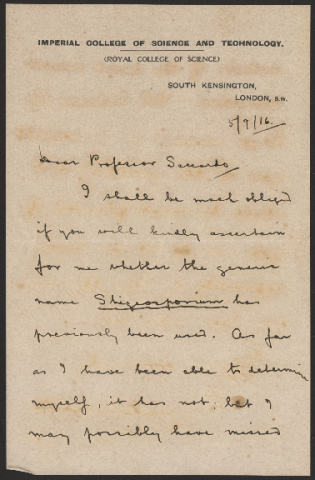 IMPERIAL COLLEGE OF SCIENCE AND TECHNOLOGY.
(ROYAL COLLEGE OF SCIENCE)
SOUTH KENSINGTON,
LONDON, S.W.
5/9/16.
Dear Professor Saccardo
I shall be much obliged
if you will kindly ascertain
for me whether the generic
name Stigeosporium has
previously been used. As far
as I have been able to determine
myself, it has not, but I
may possibly have missed